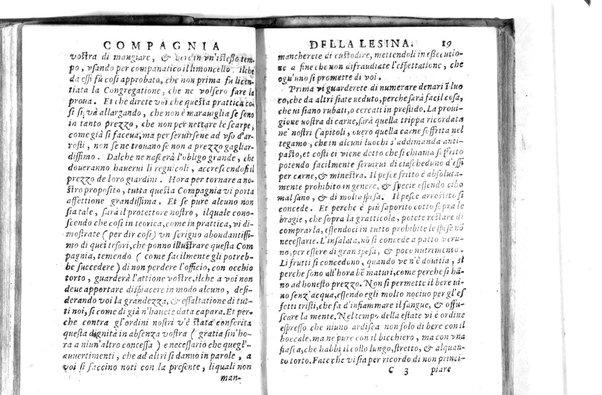 COMPAGNIA
vostra di mangiare, & ver din un'istesso tem-
po, usando per companatico il limoncello. il che
da essi fu così approbato, che non prima fu licen
tiata la Congregatione, che ne volsero fare la
proua. Et che direte voi che questa prattica co
sì si và allargando, che non è marauiglia se sono
in tanto prezzo, che non per nettare le scarpe,
come già si faceua, ma per seruirsene ad vso d'ar-
rosti, non se ne trouano se non a prezzo gagliar
dissimo. Dal che ne nascerà l'obligo grande, che
doueranno hauerui li regnicoli, accrescendosi il
prezzo de loro giardini. Hora per tornare a no-
stro proposito, tutta questa Compagnia vi porta
affettione grandissima. Et se pure alcuno non
sia tale, sarà il protettore nostro, il quale cono-
scendo che così in teorica, come in prattica, vi di-
mostrate (per dir così) un scrigno abondantissi-
mo di quei tesori, che ponno illustrare questa Com
pagnia, temendo (come facilmente gli potreb-
be succedere) di non perdere l'officio, con occhio
torto, guarderà l'attione vostre, il che a voi non
deue apportare dispiacere in modo alcuno, desi-
derando voi la grandezza, & essaltatione di tut
ti noi, sì come di già n'hauete data capara. Et per
che contra gl'ordini nostri v'è stata conferita
questa dignità in absenza vostra (gratia sin'ho-
ra a niun'altro concessa) è necessario che quegl'
auuertimenti, che ad altri si danno in parole, a
voi si faccino noti con la presente, li quali non
man-
DELLA LESINA. 19
mancherete di custodire, mettendoli in essecutio-
ne a fine che non si fraudi l'espettatione, che
ogn'uno si promette di voi.
Prima vi guarderete di numerare denari luo
co, che da altri siate veduto, perche sarà facil cosa,
che vi siano rubati, o cercati in prestido. La proui-
gione vostra di carne, sarà quella trippa ricordata
ne' nostri Capitoli, ouero quella carne soffritta nel
tegame, che in alcuni luochi s'addimanda anti-
pasto, & così vi viene detto che si chiama soffritto
potendo facilmente seruirsi di ciascheduno d'essi
per carne, & minestra. Il pesce fritto è absoluta-
mente prohibito in genere, & specie, essendo cibo
mal sano, & di molta spesa. Il pesce arrostito si
concede. Et perche è più saporito cotto sopra le
bragie, che sopra la graticola, potete restare di
comprarla, essendoci in tutto prohibite le spese nõ
necessarie. L'insalata, nõ si concede a patto veru-
no, per essere di gran spesa, & poco nutrimento.
Li frutti si concedono, quando ve n'è douitia, sì
perche sono all'hora bẽ maturi, come perche si hã
no ad honesto prezzo. Non si permette il bere vi-
no senz'acqua, essendo egli molto nociuo per gl'ef
fetti tristi, che fà d'infiammare il sangue, & of-
fuscare la mente. Nel tempo della estate vi è ordine
espresso che niuno ardisca non solo di bere con il
boccale, ma ne pure con il bicchiero, ma con vna
fiasca, che habbi il collo lungo, stretto, & alquan
to torto. Fate che vi sia per ricordo di non princi-
C 3 piare